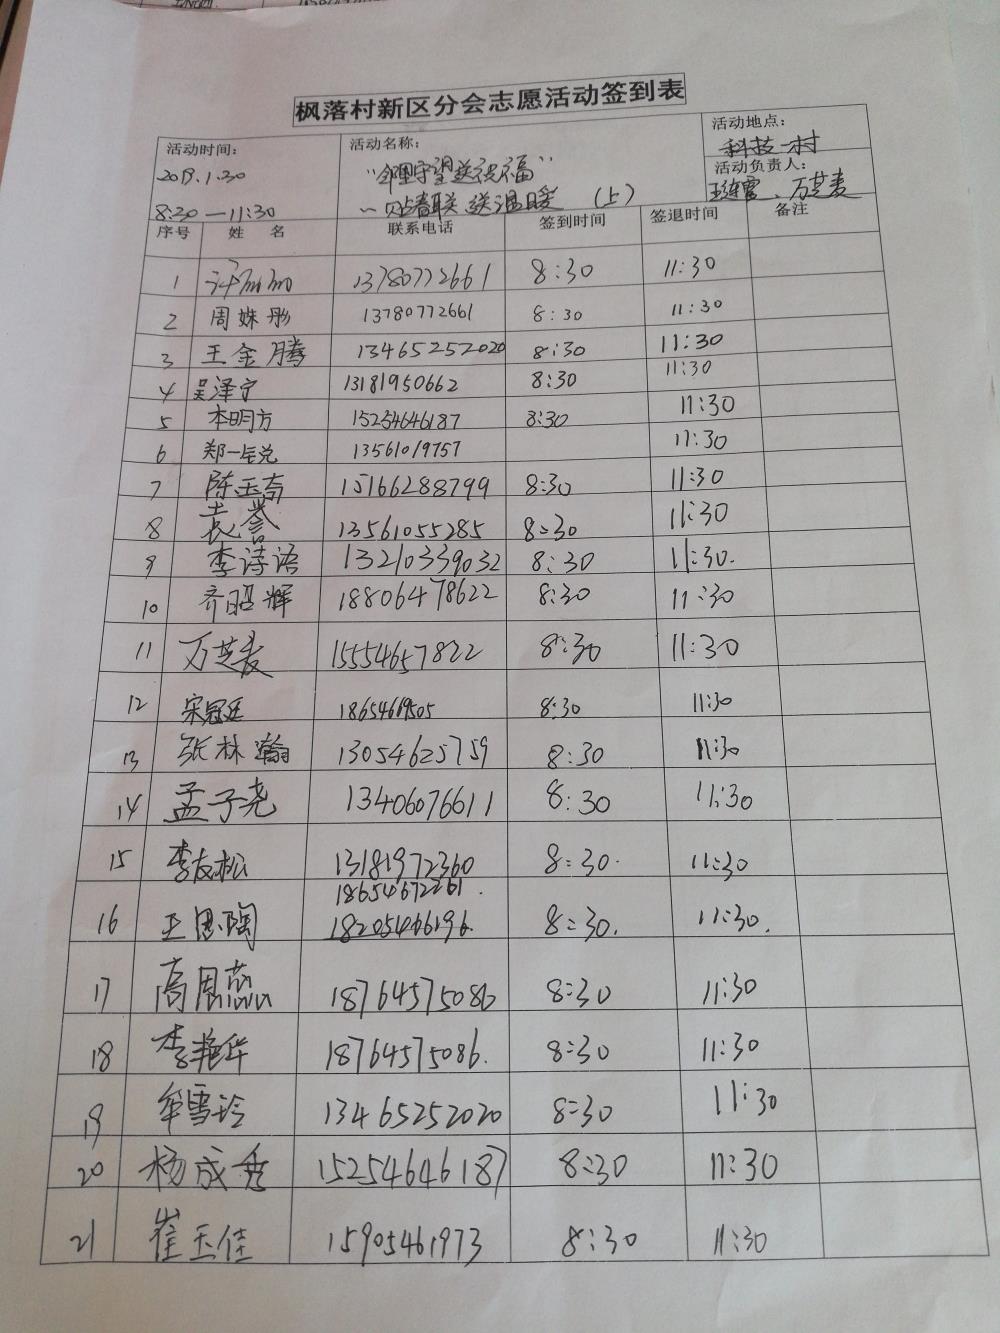 枫落村新区分会志愿活动签到表
活动时间： 活动名称： 活动地点：
2019.1.30 "邻里守望送祝福" 科技一村
8:30—11:30 —贴春联、送温暖 (上) 活动负责人：
万芝麦
序号 姓 名 联系电话 签到时间 签退时间 备注
1 13780772661 8:30 11:30
2 周姝彤 13780772661 8:30 11:30
3 王金腾 13465252020 8:30 11:30
4 吴泽宁 13181950662 8:30 11:30
5 李明方 15254646187 8:30 11:30
6 郑一锐 13561019757 11:30
7 陈玉奇 15166288799 8:30 11:30
8 袁誉 13561055285 8:30 11:30
9 李诗语 13210339032 8:30 11:30.
10 齐昭辉 18806478622 8:30 11:30
11 万芝麦 15554657822 8:30 11:30
12 宋冠廷 18654619505 8:30 11:30
13 张林瀚 13054625759 8:30 11:30
14 孟子尧 13406076611 8:30 11:30
15 李友松 13181972360 8:30. 11:30
18654672261.
16 王思陶 18205466196. 8:30. 11:30.
17 高周蕊 18764575086 8:30 11:30
18 李艳华 18764575086. 8:30 11:30
19 牟雪玲 13465252020 8:30 11:30
20 杨成秀 15254646187 8:30 11:30
21 崔玉佳 15905461973 8:30 11:30